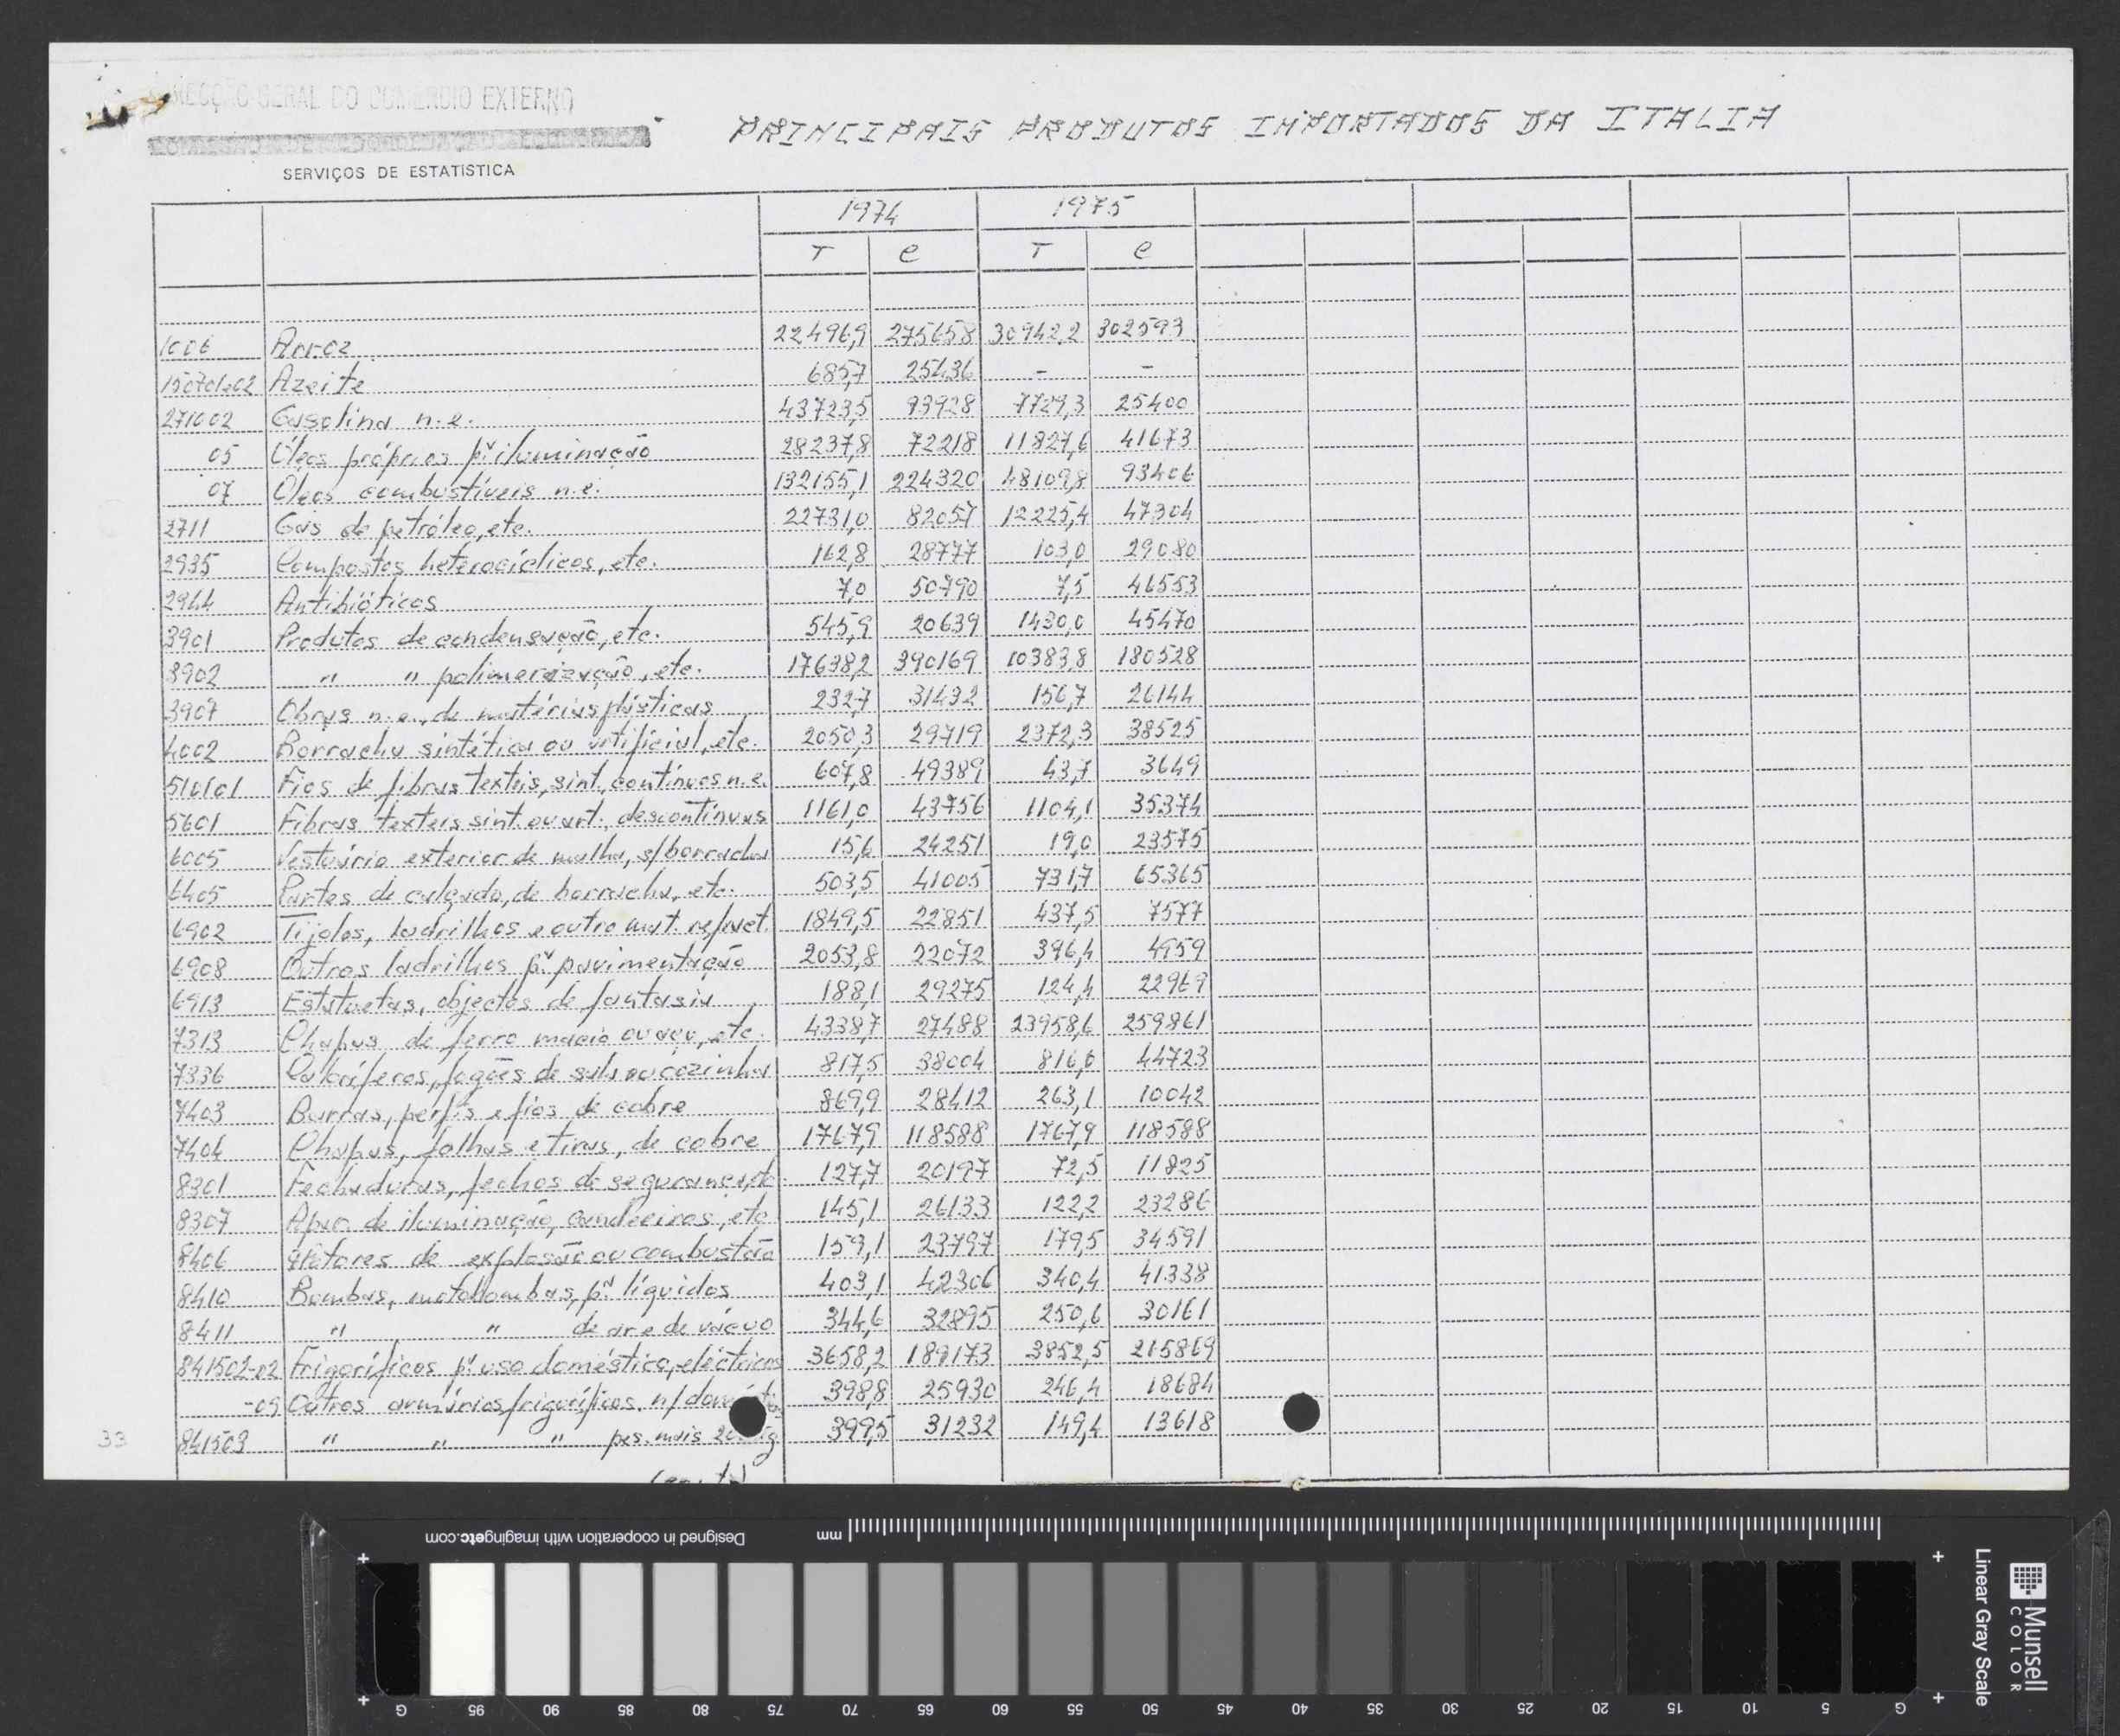 DIRECÇÃO-GERAL DO COMÉRCIO EXTERNO
SERVIÇOS DE ESTATÍSTICA
PRINCIPAIS PRODUTOS IMPORTADOS DA ITALIA
1974 1975
T C T C
1006 Arroz 22496,9 275658 30942,2 302593
150701e02 Azeite 685,7 25436 - -
271002 Gasolina n.e. 43723,5 93928 7729,3 25400
05 Óleos próprios pª iluminação 28237,8 72218 11827,6 41673
07 Óleos combustíveis n.e. 132155,1 224320 48109,8 93406
2711 Gás de petróleo, etc. 22731,0 82057 12225,4 47304
2935 Compostos heterocíclicos, etc. 162,8 28777 103,0 29080
2944 Antibióticos 7,0 50790 7,5 46553
3901 Produtos de condensação, etc. 545,9 20639 1430,0 45470
3902 " " polimerização, etc. 17638,2 390169 10383,8 180528
3907 Obras n.e., de matérias plásticas 232,7 31432 156,7 26144
4002 Borracha sintética ou artificial, etc. 2050,3 29719 2372,3 38525
510101 Fios de fibras texteis, sint. contínuos n.e. 607,8 49389 43,7 3649
5601 Fibras texteis sint. ou art., descontínuas 1161,0 43756 1104,1 35374
6005 Vestuário exterior de malha, s/borracha 15,6 24251 19,0 23575
6405 Partes de calçado, de borracha, etc. 503,5 41005 731,7 65365
6902 Tijolos, ladrilhos e outro mat. refract. 1849,5 22851 437,5 7577
6908 Outros ladrilhos pª pavimentação 2053,8 22072 396,4 4959
6913 Estatuetas, objectos de fantasia 188,1 29275 124,4 22969
7313 Chapas de ferro macio ou aço, etc. 4338,7 27488 23958,6 259861
7336 Caloríferos, fogões de sala ou cozinha 817,5 38004 816,6 44723
7403 Barras, perfis e fios de cobre 869,9 28412 263,1 10042
7404 Chapas, folhas e tiras, de cobre 1767,9 118588 1767,9 118588
8301 Fechaduras, fechos de segurança, etc 127,7 20197 72,5 11825
8307 Apar. de iluminação, candeeiros, etc 145,1 26133 122,2 23286
8406 Motores de explosão ou combustão 159,1 23797 179,5 34591
8410 Bombas, motobombas, pª líquidos 403,1 42306 340,4 41338
8411 " " de ar e de vácuo 344,6 32895 250,6 30161
841501-02 Frigoríficos pª uso doméstico, eléctricos 3658,2 189173 3852,5 215869
-09 Outros armários frigoríficos, n/ 398,8 25930 246,4 18684
841503 " " " pes. mais 399,5 31232 149,4 13618
33
Designed in cooperation with imagingetc.com
mm
G 95 90 85 80 75 70 65 60 55 50 45 40 35 30 25 20 15 10 5 G
Linear Gray Scale
Munsell
COLOR